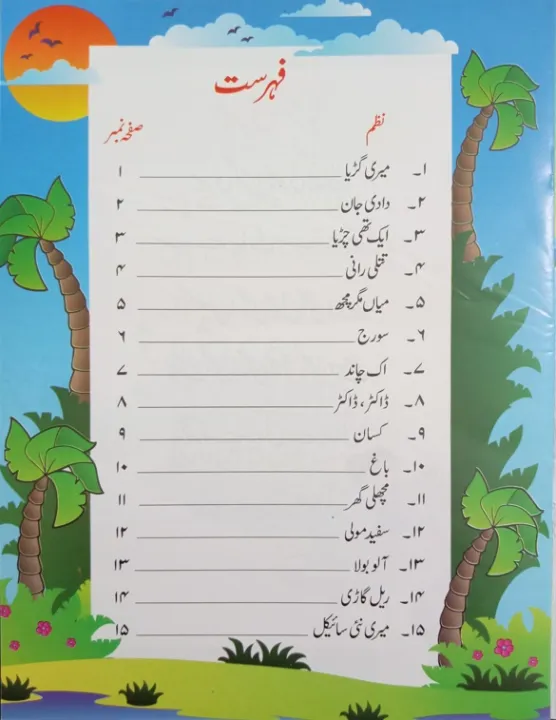 فہرست
نظم صفحہ نمبر
۱۔ میری گڑیا ۱
۲۔ دادی جان ۲
۳۔ ایک تھی چڑیا ۳
۴۔ تتلی رانی ۴
۵۔ میاں مگرمچھ ۵
۶۔ سورج ۶
۷۔ اک چاند ۷
۸۔ ڈاکٹر، ڈاکٹر ۸
۹۔ کسان ۹
۱۰۔ باغ ۱۰
۱۱۔ مچھلی گھر ۱۱
۱۲۔ سفید مولی ۱۲
۱۳۔ آلو بولا ۱۳
۱۴۔ ریل گاڑی ۱۴
۱۵۔ میری نئی سائیکل ۱۵